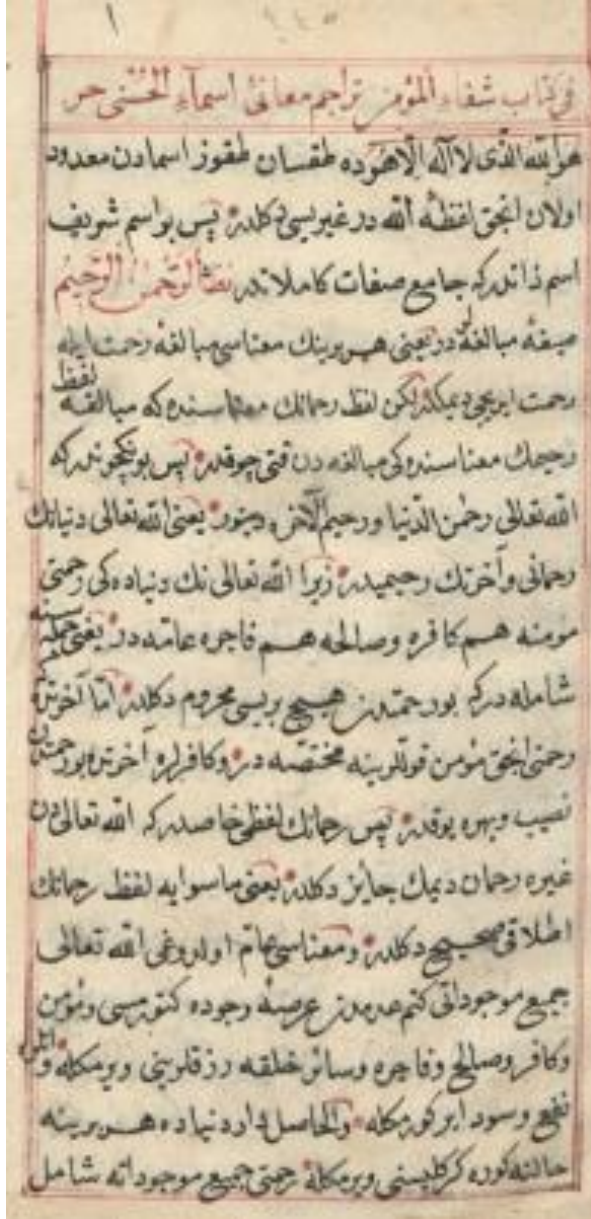 ١
١٤٥
فى كتاب شفاء المؤمن تراجم معانئ اسمآء الحسنى حر
هوالله الذى لا اله الا هوده طقسان طقوز اسمادن معدود
اولان انجق لفظه الله در غيريسى دكلدر پس بو اسم شريف
اسم ذاتدركه جامع صفات كاملاتدر الرحمن الرحيم
صيغه مبالغه در يعنى هر برينك معناسى مبالغه رحمت ايله
رحمت ايديجى ديمكدر لكن لفظ رحمانك معناسنده كه مبالغه لفظ
رحيمك معناسنده كى مبالغه دن قتى چوقدر پس بونكچوندركه
الله تعالى رحمن الدنيا ورحيم الآخره دينور يعنى الله تعالى دنيانك
رحمانى وآخرتك رحيميدر زيرا الله تعالى نك دنياده كى رحمتى
مومنه هم كافره وصالحه هم فاجره عامه در يعنى جمله سنه
شامله دركه بو رحمتدن هيچ بريسى محروم دكلدر اما آخرتده كى
رحمتى انجق مؤمن قوللرينه مختصه در وكافرلره آخرتده بو رحمتدن
نصيب وبهره يوقدر پس رحمانك لفظى خاصدركه الله تعالى دن
غيره رحمان ديمك جايز دكلدر يعنى ماسوايه لفظ رحمانك
اطلاقى صحيح دكلدر ومعناسى عام اولدوغى الله تعالى
جميع موجوداتى كتم عدمدن عرصه وجوده كتورمسى ومؤمن
وكافر وصالح وفاجره وسائر خلقه رزقلرينى ويرمكله و
نفع وسود ايركورمكله والحاصل دار دنياده هر برينه
حالنه كوره كركليسنى ويرمكله رحمتى جميع موجوداته شامل